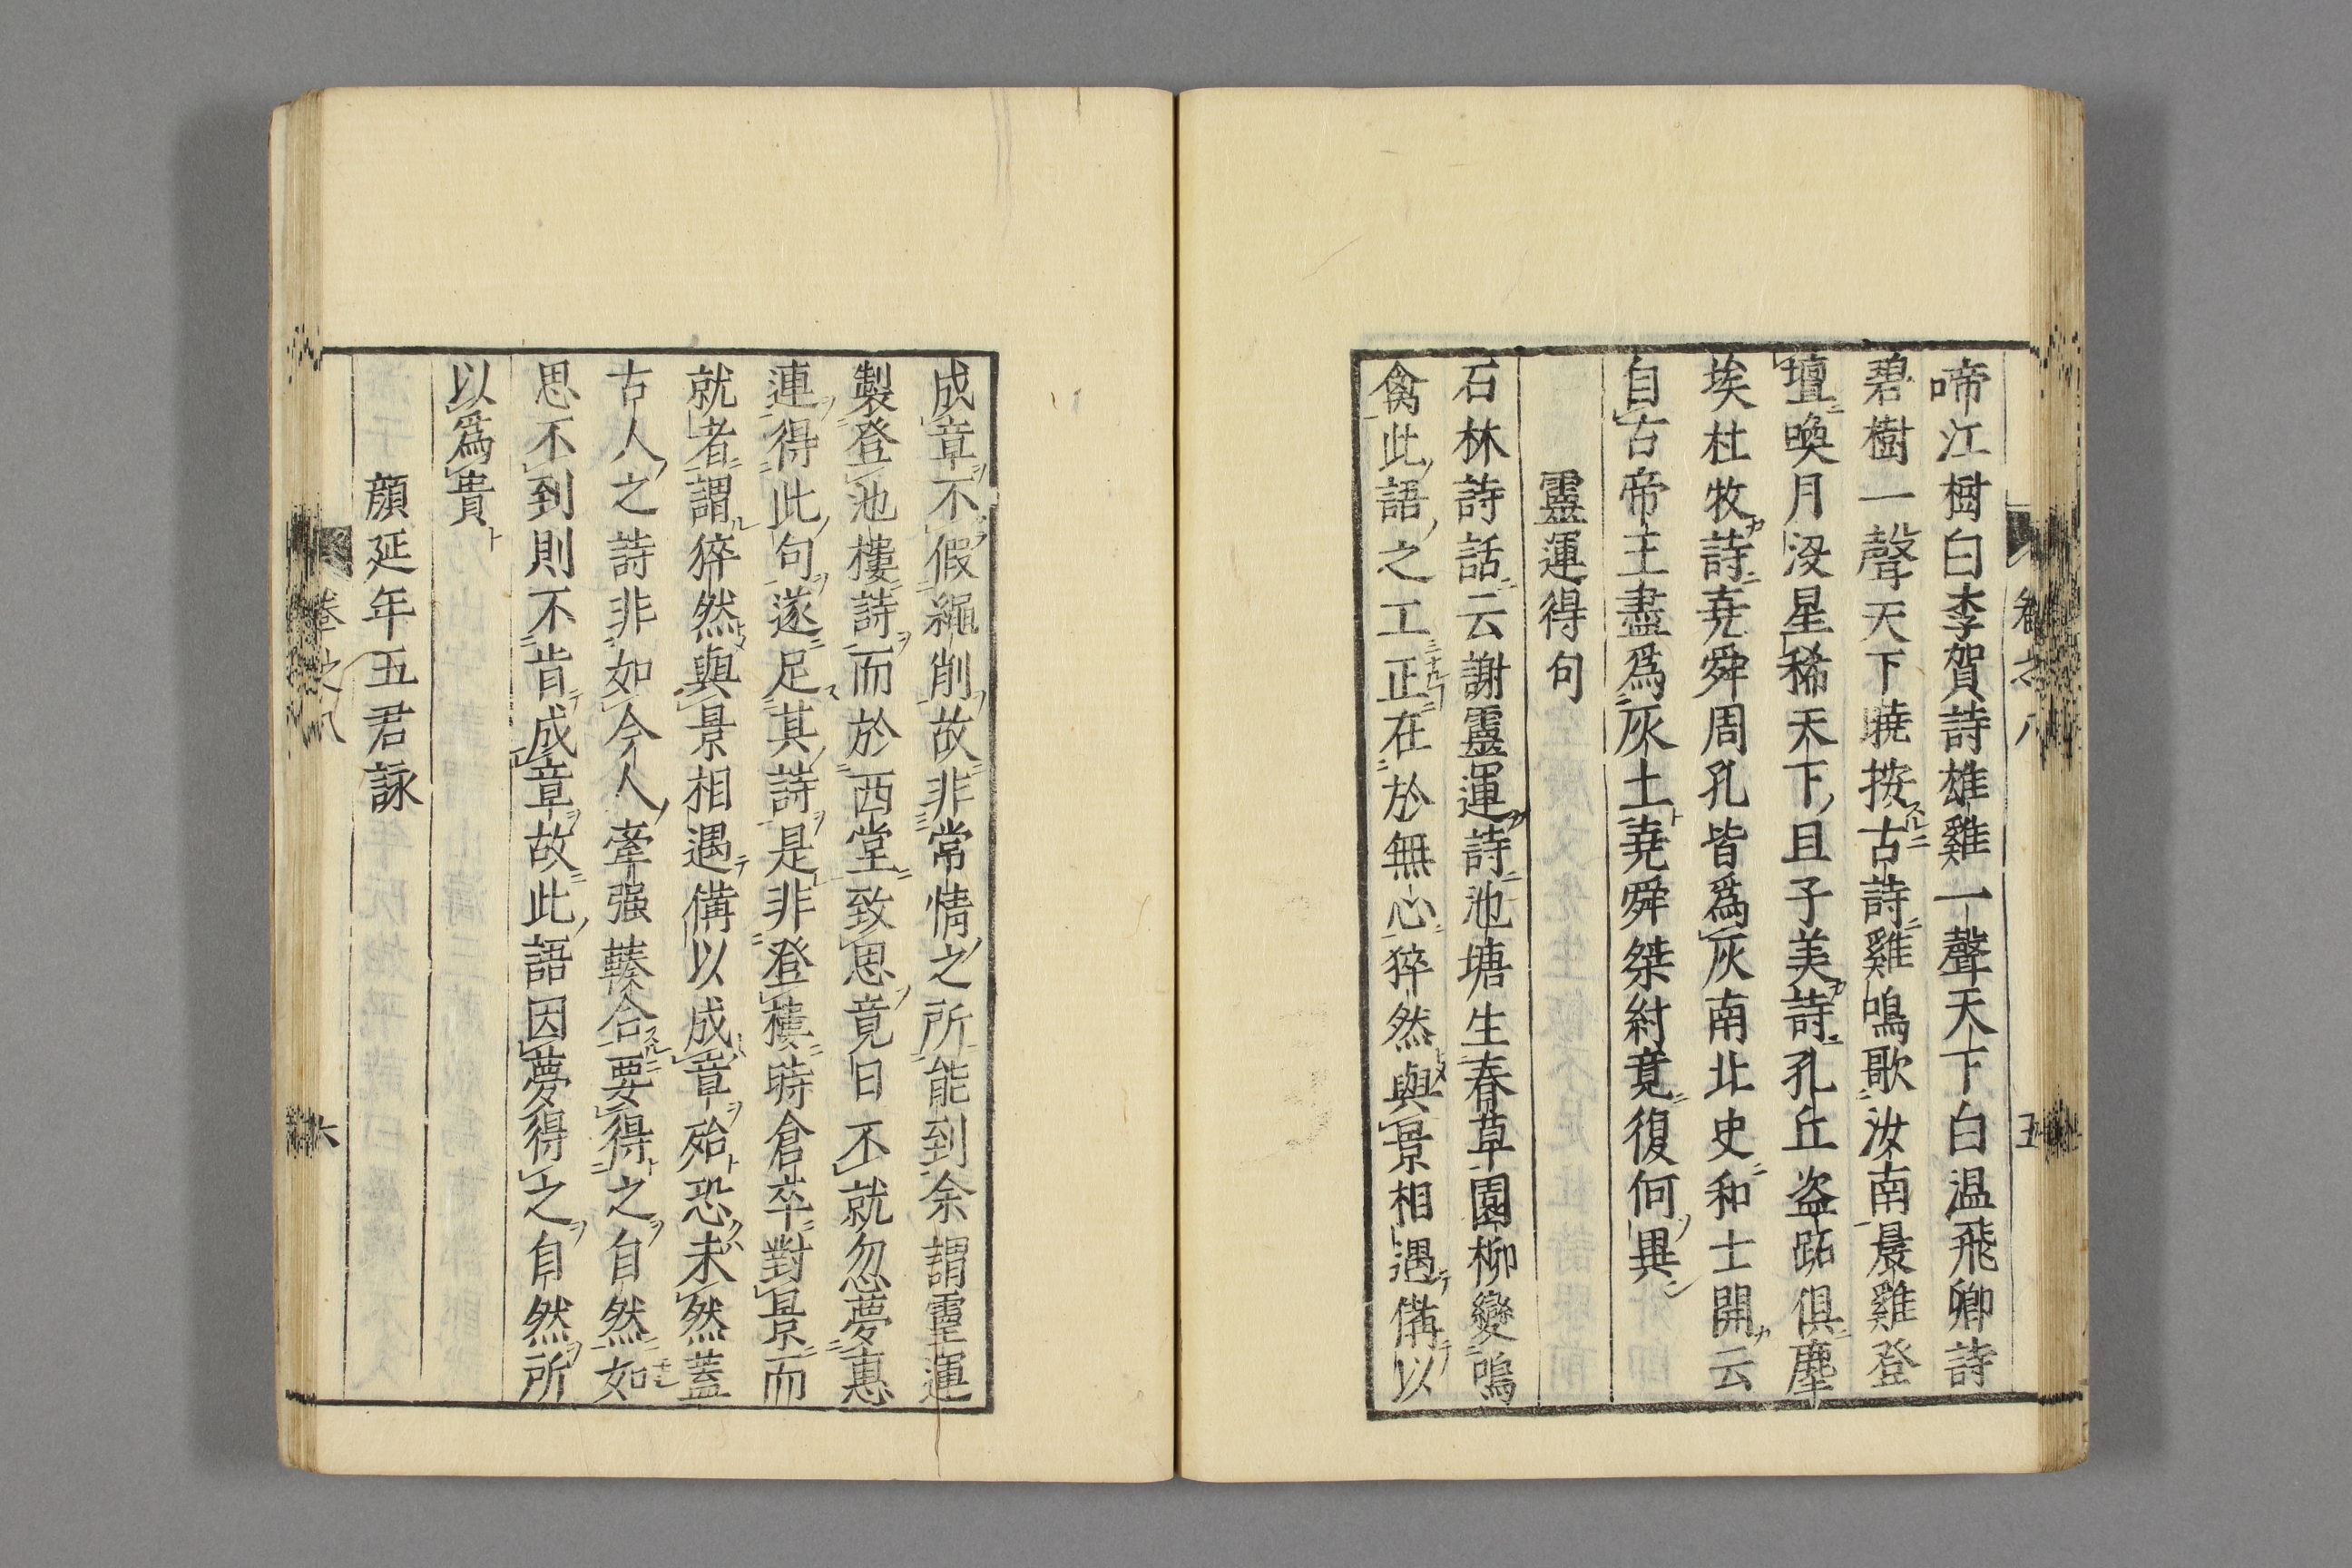 啼江樹白李賀詩雄雞一聲天下白温飛卿詩
碧樹一聲天下曉按古詩雞鳴歌汝南晨雞登
壇喚月没星稀天下且子美詩孔丘盗跖俱塵
埃杜牧詩堯舜周孔皆爲灰南北史和士開云
自古帝王盡爲灰土堯舜桀紂竟復何異
靈運得句
石林詩話云謝靈運詩池塘生春草園柳變鳴
禽此語之工正在於無心猝然與景相遇備以
卷之八
五
成章不假繩削故非常情之所能到余謂靈運
製登池樓詩而於西堂致思竟日不就忽夢惠
連得此句遂足其詩是非登樓時倉卒對景而
就者謂猝然與景相遇備以成章殆恐未然蓋
古人之詩非如今人牽强輳合要得之自然如
思不到則不肯成章故此語因夢得之自然所
以爲貴
顔延年五君詠
卷之八
六